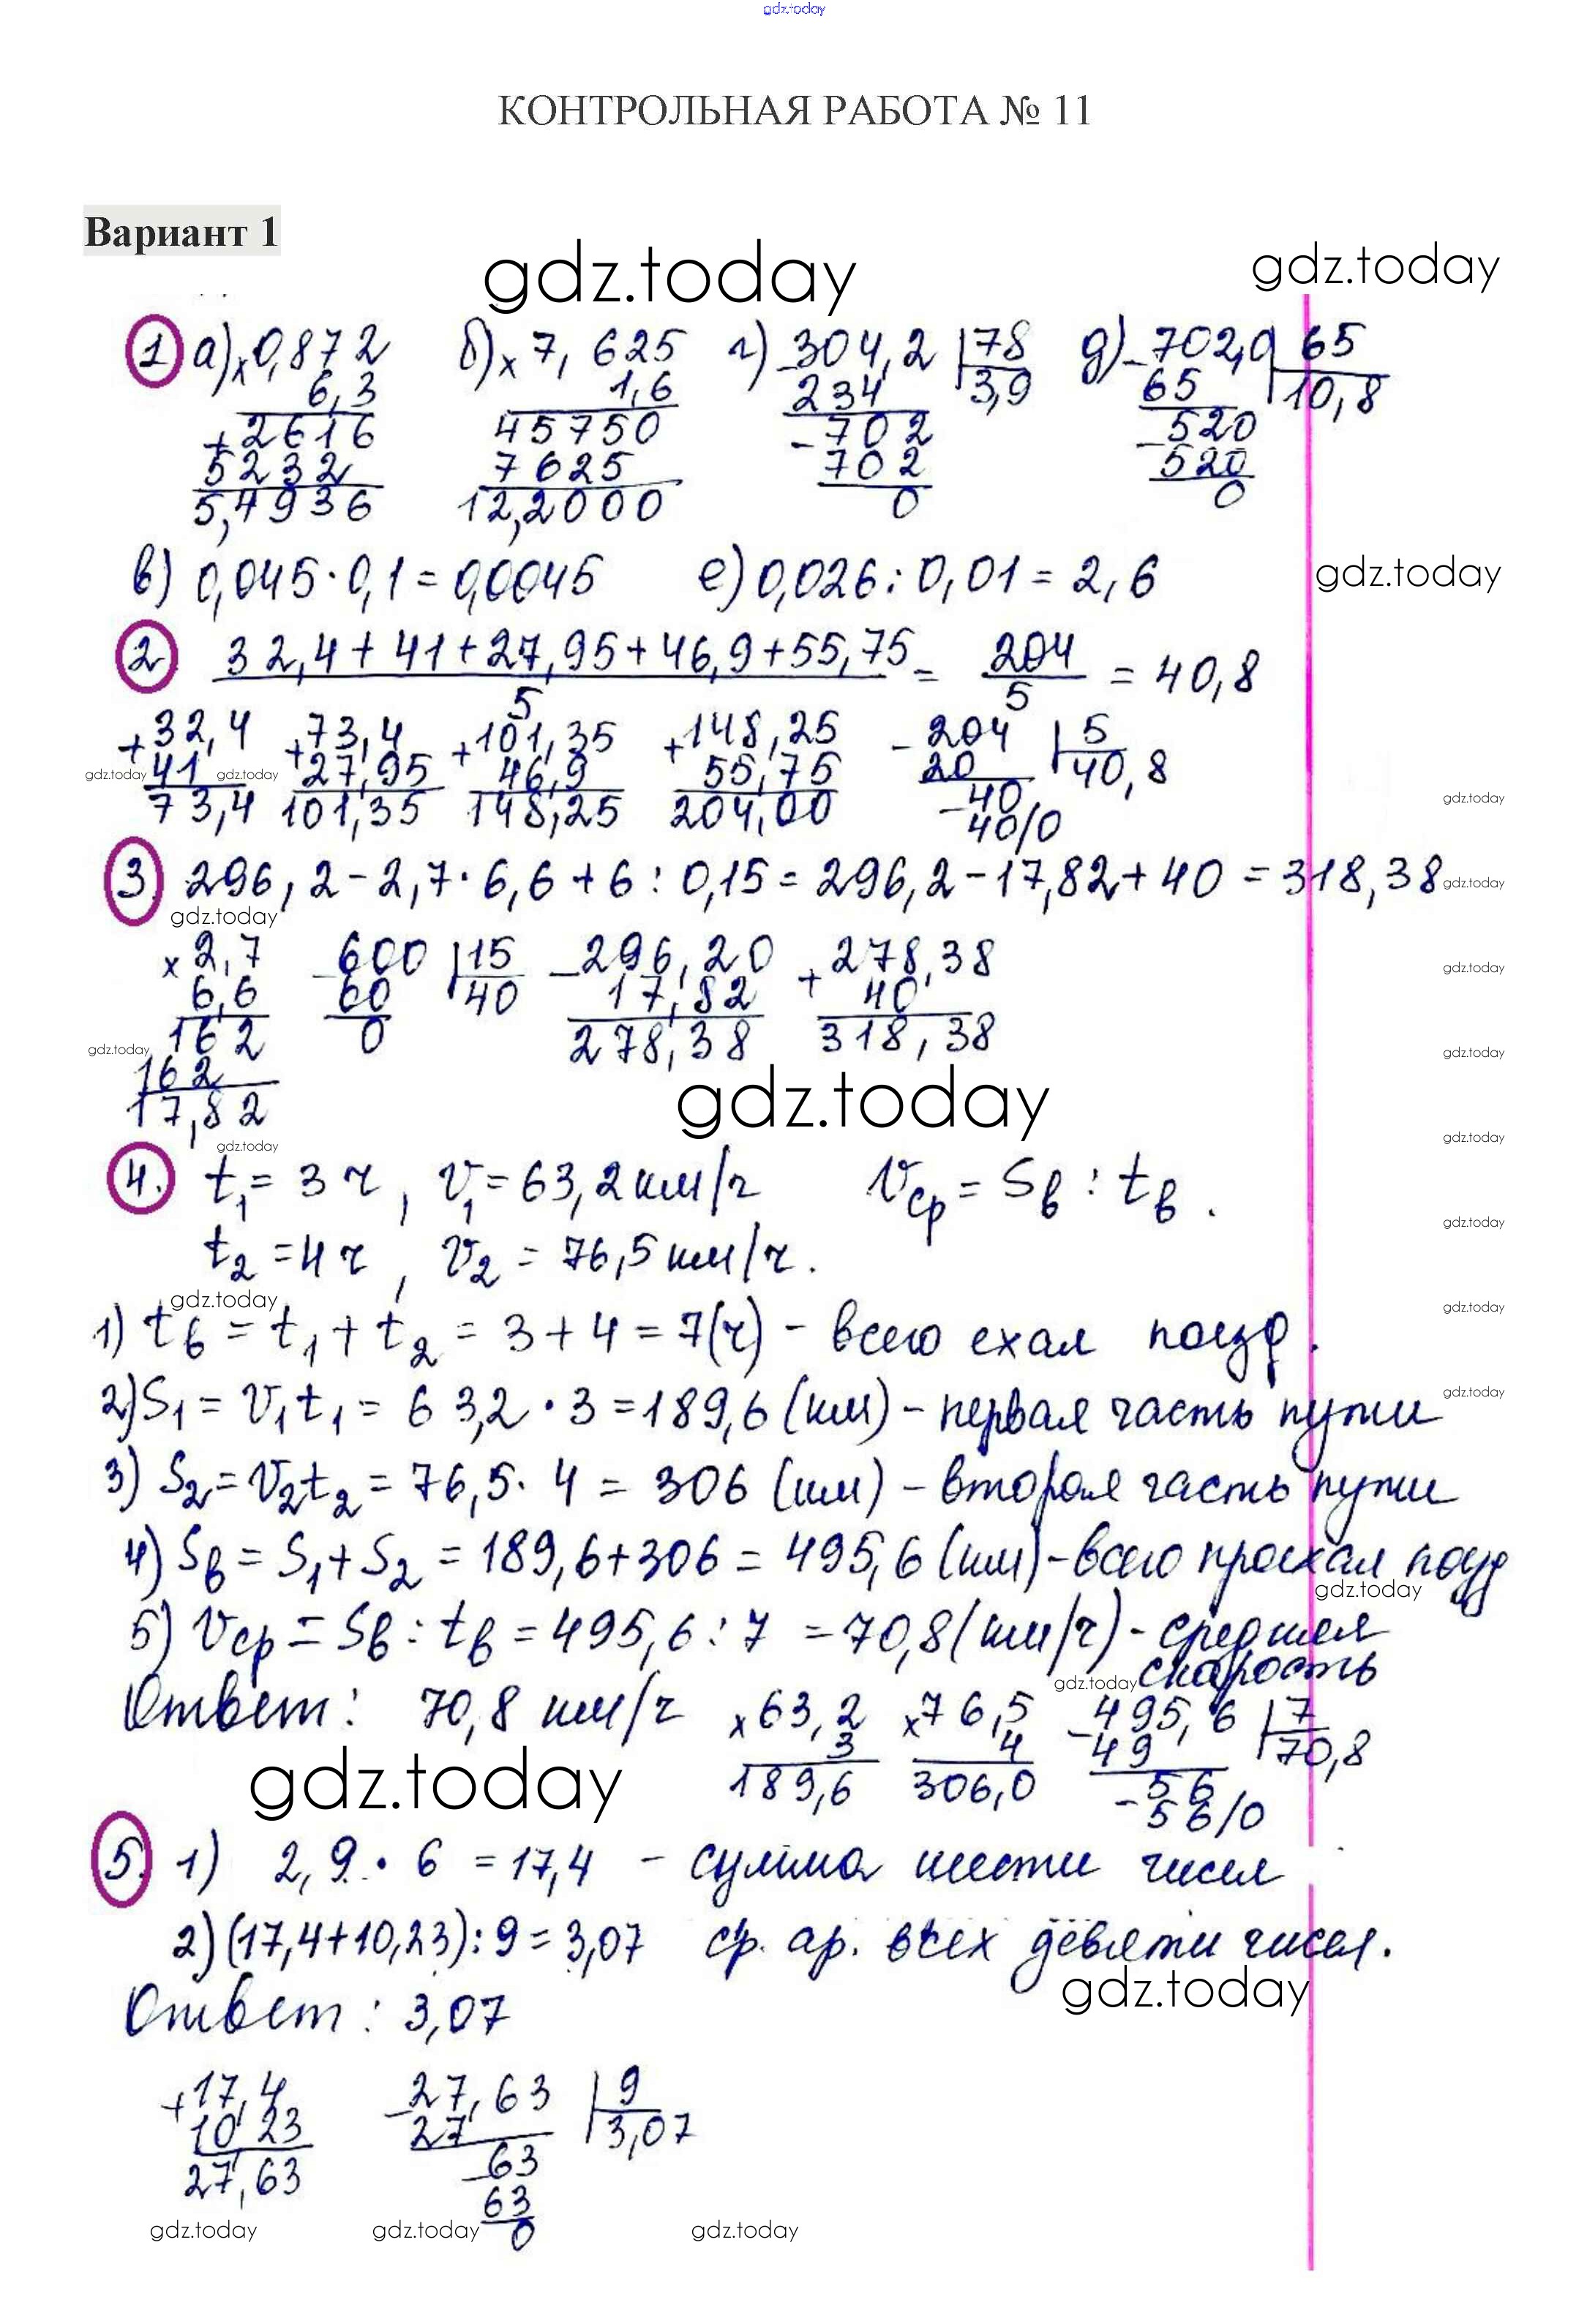 gdz.today
КОНТРОЛЬНАЯ РАБОТА № 11
Вариант 1
gdz.today gdz.today
1 а) × 0,872 б) × 7,625 г) - 304,2 | 78 д) - 702,0 | 65
6,3 1,6 234 3,9 65 10,8
+ 2616 45750 - 702 - 520
5232 7625 702 520
5,4936 12,2000 0 0
в) 0,045 · 0,1 = 0,0045 е) 0,026 : 0,01 = 2,6 gdz.today
2 32,4 + 41 + 27,95 + 46,9 + 55,75 = 204 = 40,8
5 5
+ 32,4 + 73,4 + 101,35 + 148,25 - 204 | 5
gdz.today 41 gdz.today 27,95 46,9 55,75 20 40,8
73,4 101,35 148,25 204,00 - 40 gdz.today
40/0
3. 296,2 - 2,7 · 6,6 + 6 : 0,15 = 296,2 - 17,82 + 40 = 318,38 gdz.today
gdz.today
× 2,7 - 600 | 15 - 296,20 + 278,38 gdz.today
6,6 60 40 17,82 40
162 0 278,38 318,38
gdz.today gdz.today
162 gdz.today
17,82
gdz.today gdz.today
4. t1 = 3 ч, v1 = 63,2 км/ч vср = Sв : tв.
gdz.today
t2 = 4 ч, v2 = 76,5 км/ч.
gdz.today gdz.today
1) tв = t1 + t2 = 3 + 4 = 7(ч) - всего ехал поезд.
2) S1 = v1t1 = 63,2 · 3 = 189,6 (км) - первая часть пути
gdz.today
3) S2 = v2t2 = 76,5 · 4 = 306 (км) - вторая часть пути
4) Sв = S1 + S2 = 189,6 + 306 = 495,6 (км) - всего проехал поезд
gdz.today
5) vср = Sв : tв = 495,6 : 7 = 70,8 (км/ч) - средняя
gdz.today скорость
Ответ: 70,8 км/ч × 63,2 × 76,5 - 495,6 | 7
3 4 49 70,8
gdz.today 189,6 306,0 - 56
56/0
5. 1) 2,9 · 6 = 17,4 - сумма шести чисел
2) (17,4 + 10,23) : 9 = 3,07 ср. ар. всех девяти чисел.
gdz.today
Ответ: 3,07
+ 17,4 - 27,63 | 9
10,23 27 3,07
27,63 - 63
63
gdz.today gdz.today 0 gdz.today